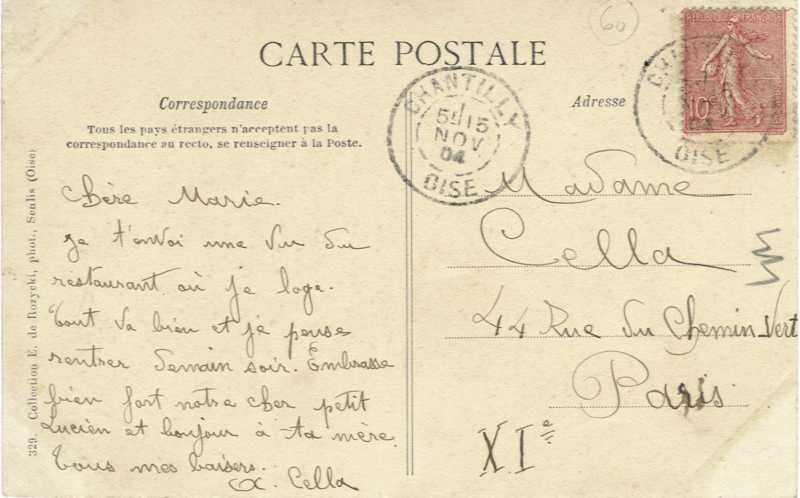 60
REPUBLIQUE FRANÇAISE
10
CARTE POSTALE
CHANTILLY
5E 15
NOV
04
OISE
CHANTILLY
OISE
Correspondance
Adresse
Tous les pays étrangers n'acceptent pas la
correspondance au recto, se renseigner à la Poste.
Chère Marie.
Je t'envoi une vu du
restaurant où je loge.
Tout va bien et je pense
rentrer demain soir. Embrasse
bien fort notre cher petit
Lucien et bonjour à ta mère.
Tous mes baisers.
A. Cella
Madame
Cella
44 Rue du Chemin-Vert
Paris
XIe
329. Collection E. de Rozycki, phot., Senlis (Oise)